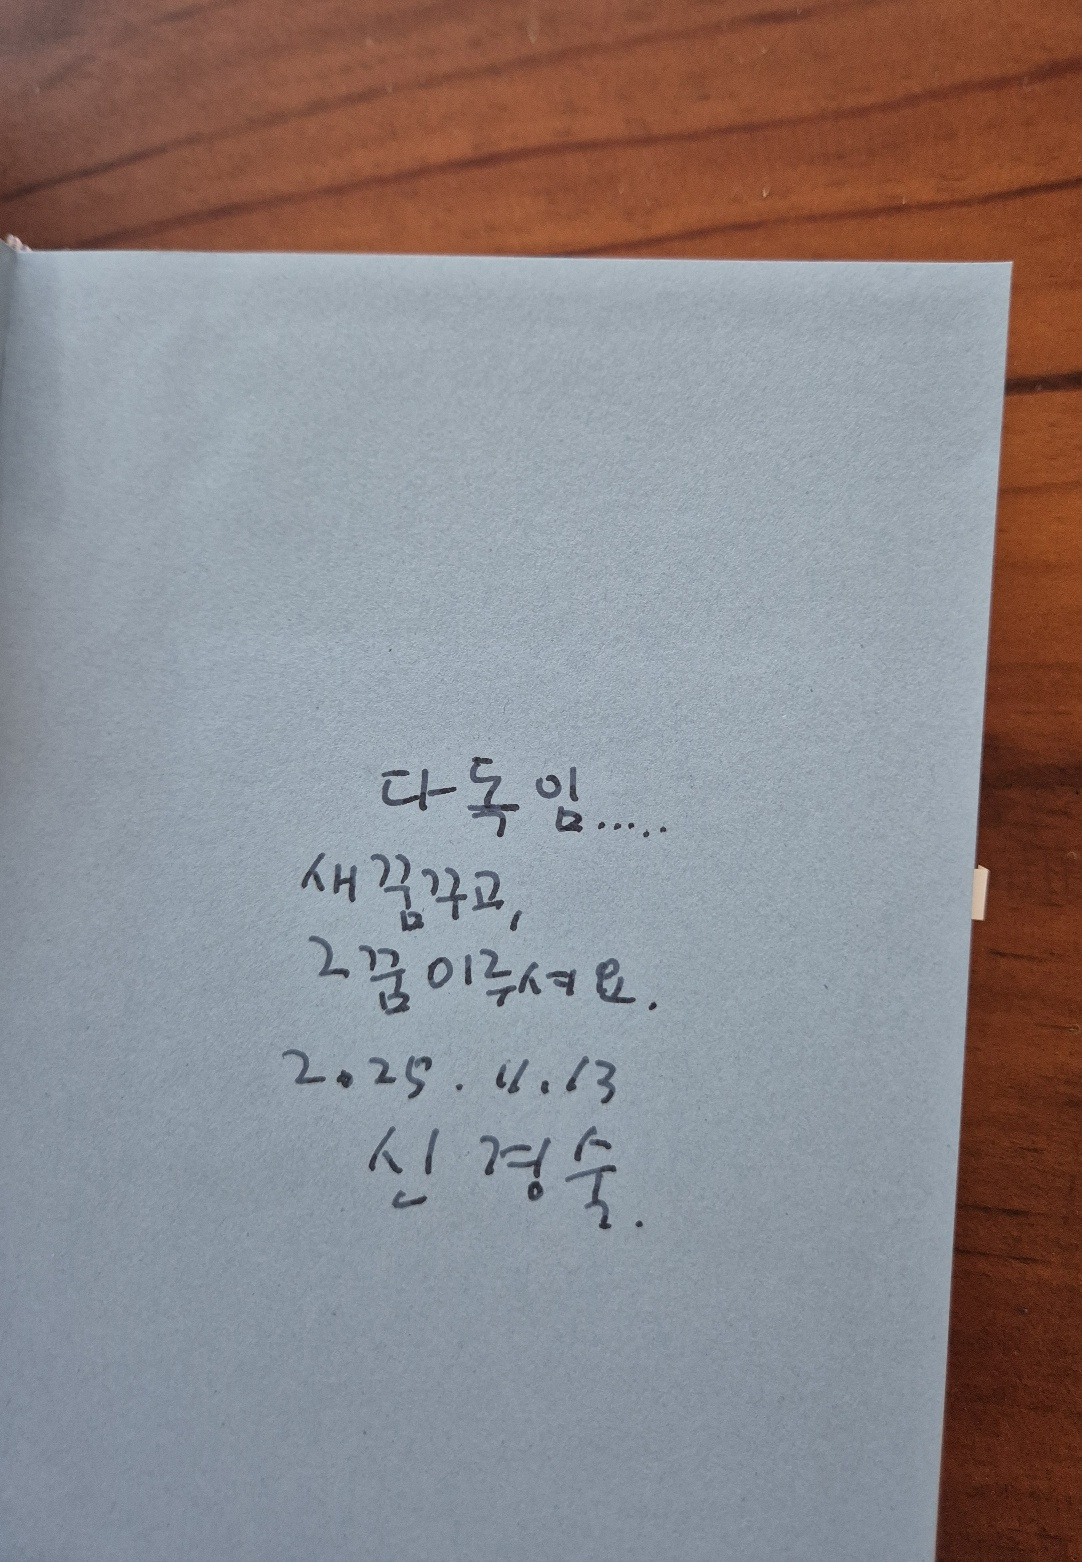 다독임.....
새꿈꾸고,
그꿈이루셔요.
2.25. 11. 13
신경숙.